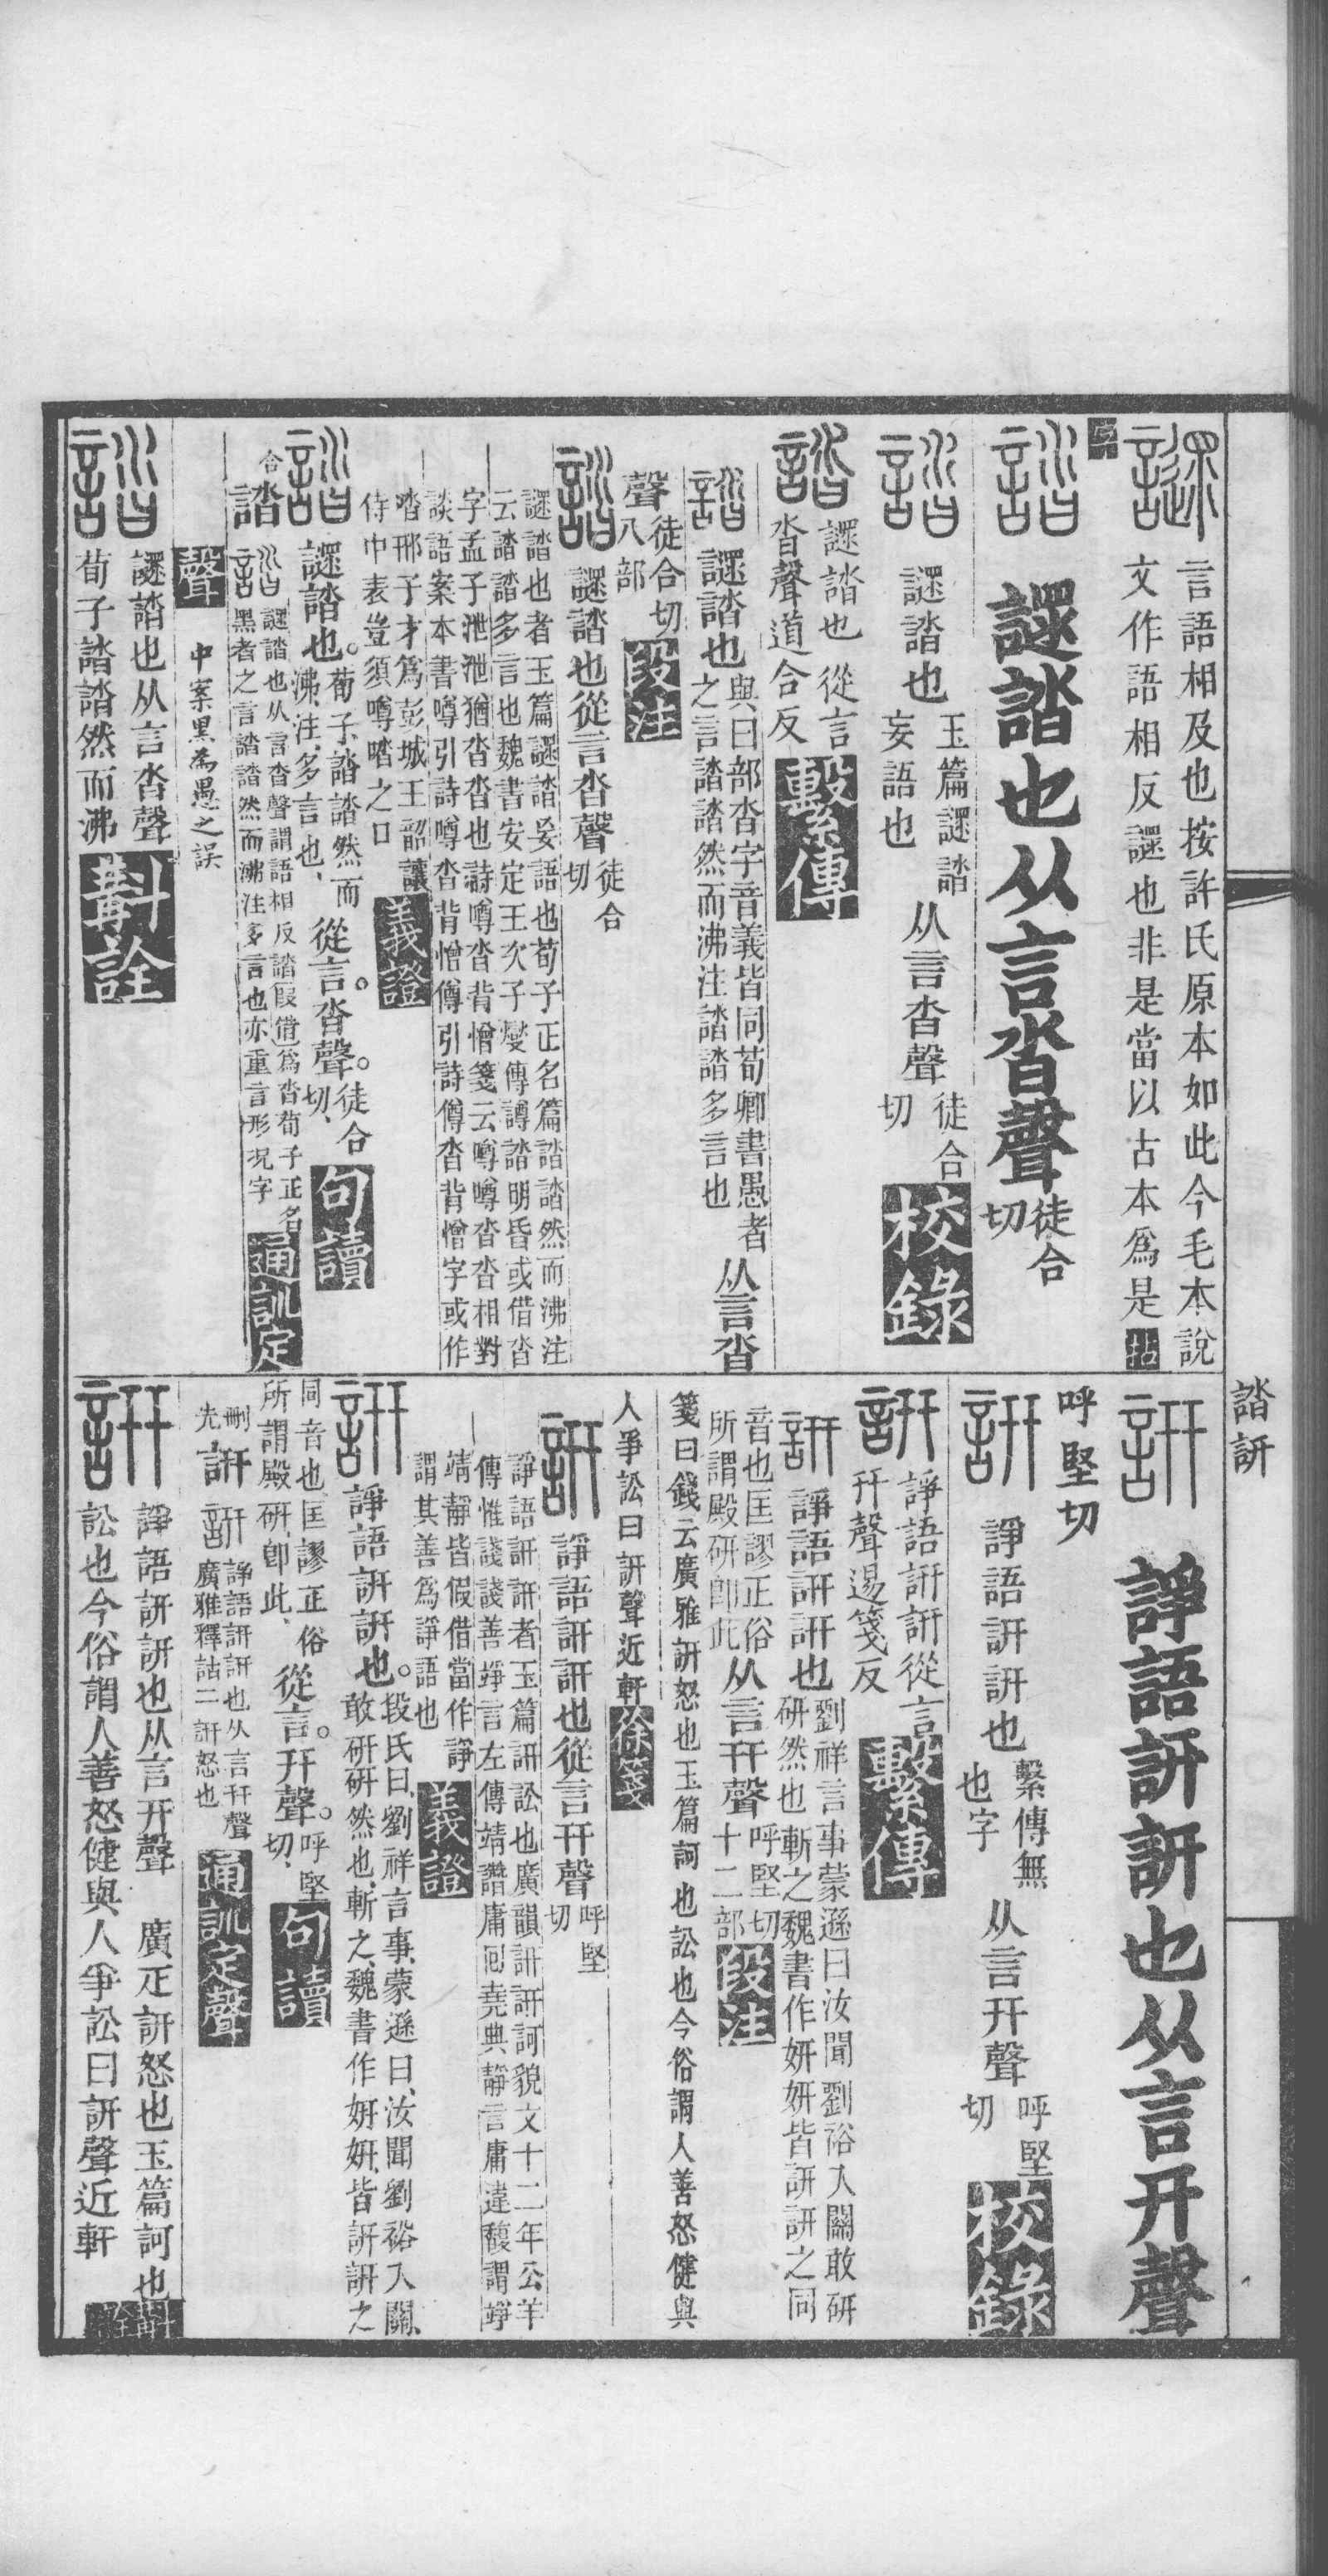 言語相及也按許氏原本如此今毛本說
文作語相反謎也非是當以古本爲是
謎誻也从言沓聲
徒合
切
謎誻也
玉篇謎誻
妄語也
从言沓聲
徒合
切
校錄
謎誻也從言
沓聲道合反
繫傳
謎誻也
與曰部沓字音義皆同荀卿書愚者
之言誻誻然而沸注誻誻多言也
从言沓
聲
徒合切
八部
段注
謎誻也從言沓聲
徒合
切
謎誻也者玉篇謎誻妄語也荀子正名篇誻誻然而沸注
云誻誻多言也魏書安定王次子燮傳譐誻明昏或借沓
字孟子泄泄猶沓沓也詩噂沓背憎箋云噂噂沓沓相對
談語案本書噂引詩噂沓背憎僔引詩僔沓背憎字或作
㗳邢子才爲彭城王韶讓
侍中表豈須噂㗳之口
義證
謎誻也。
荀子、誻誻然而
沸、注、多言也、
從言。沓聲。
徒合
切、
句讀
合
誻
謎誻也从言沓聲謂語相反誻假借爲沓荀子正名
黑者之言誻誻然而沸注多言也亦重言形況字
通訓定
聲
中案黑爲愚之誤
謎誻也从言沓聲
荀子誻誻然而沸
斠詮
誻訮
諍語訮訮也从言幵聲
呼堅切
諍語訮訮也
繫傳無
也字
从言幵聲
呼堅
切
校錄
諍語訮訮從言
幵聲遏箋反
繫傳
諍語訮訮也
劉祥言事蒙遜曰汝聞劉裕入關敢研
研然也斬之魏書作妍妍皆訮訮之同
音也匡謬正俗
所謂殿研卽此
从言幵聲
呼堅切
十二部
段注
箋曰錢云廣雅訮怒也玉篇訶也訟也今俗謂人善怒健與
人爭訟曰訮聲近軒
徐箋
諍語訮訮也從言幵聲
呼堅
切
諍語訮訮者玉篇訮訟也廣韻訮訮訶貌文十二年公羊
傳惟諓諓善竫言左傳靖譖庸回堯典靜言庸違馥謂竫
靖靜皆假借當作諍
謂其善爲諍語也
義證
諍語訮訮也。
段氏曰、劉祥言事、蒙遜曰、汝聞劉裕入關、
敢研研然也、斬之、魏書作妍妍、皆訮訮之
同音也、匡謬正俗
所謂殿研、卽此、
從言。幵聲。
呼堅
切、
句讀
刪
先
訮
諍語訮訮也从言幵聲
廣雅釋詁二訮怒也
通訓定聲
諍語訮訮也从言幵聲 廣疋訮怒也玉篇訶也
訟也今俗謂人善怒健與人爭訟曰訮聲近軒
斠詮